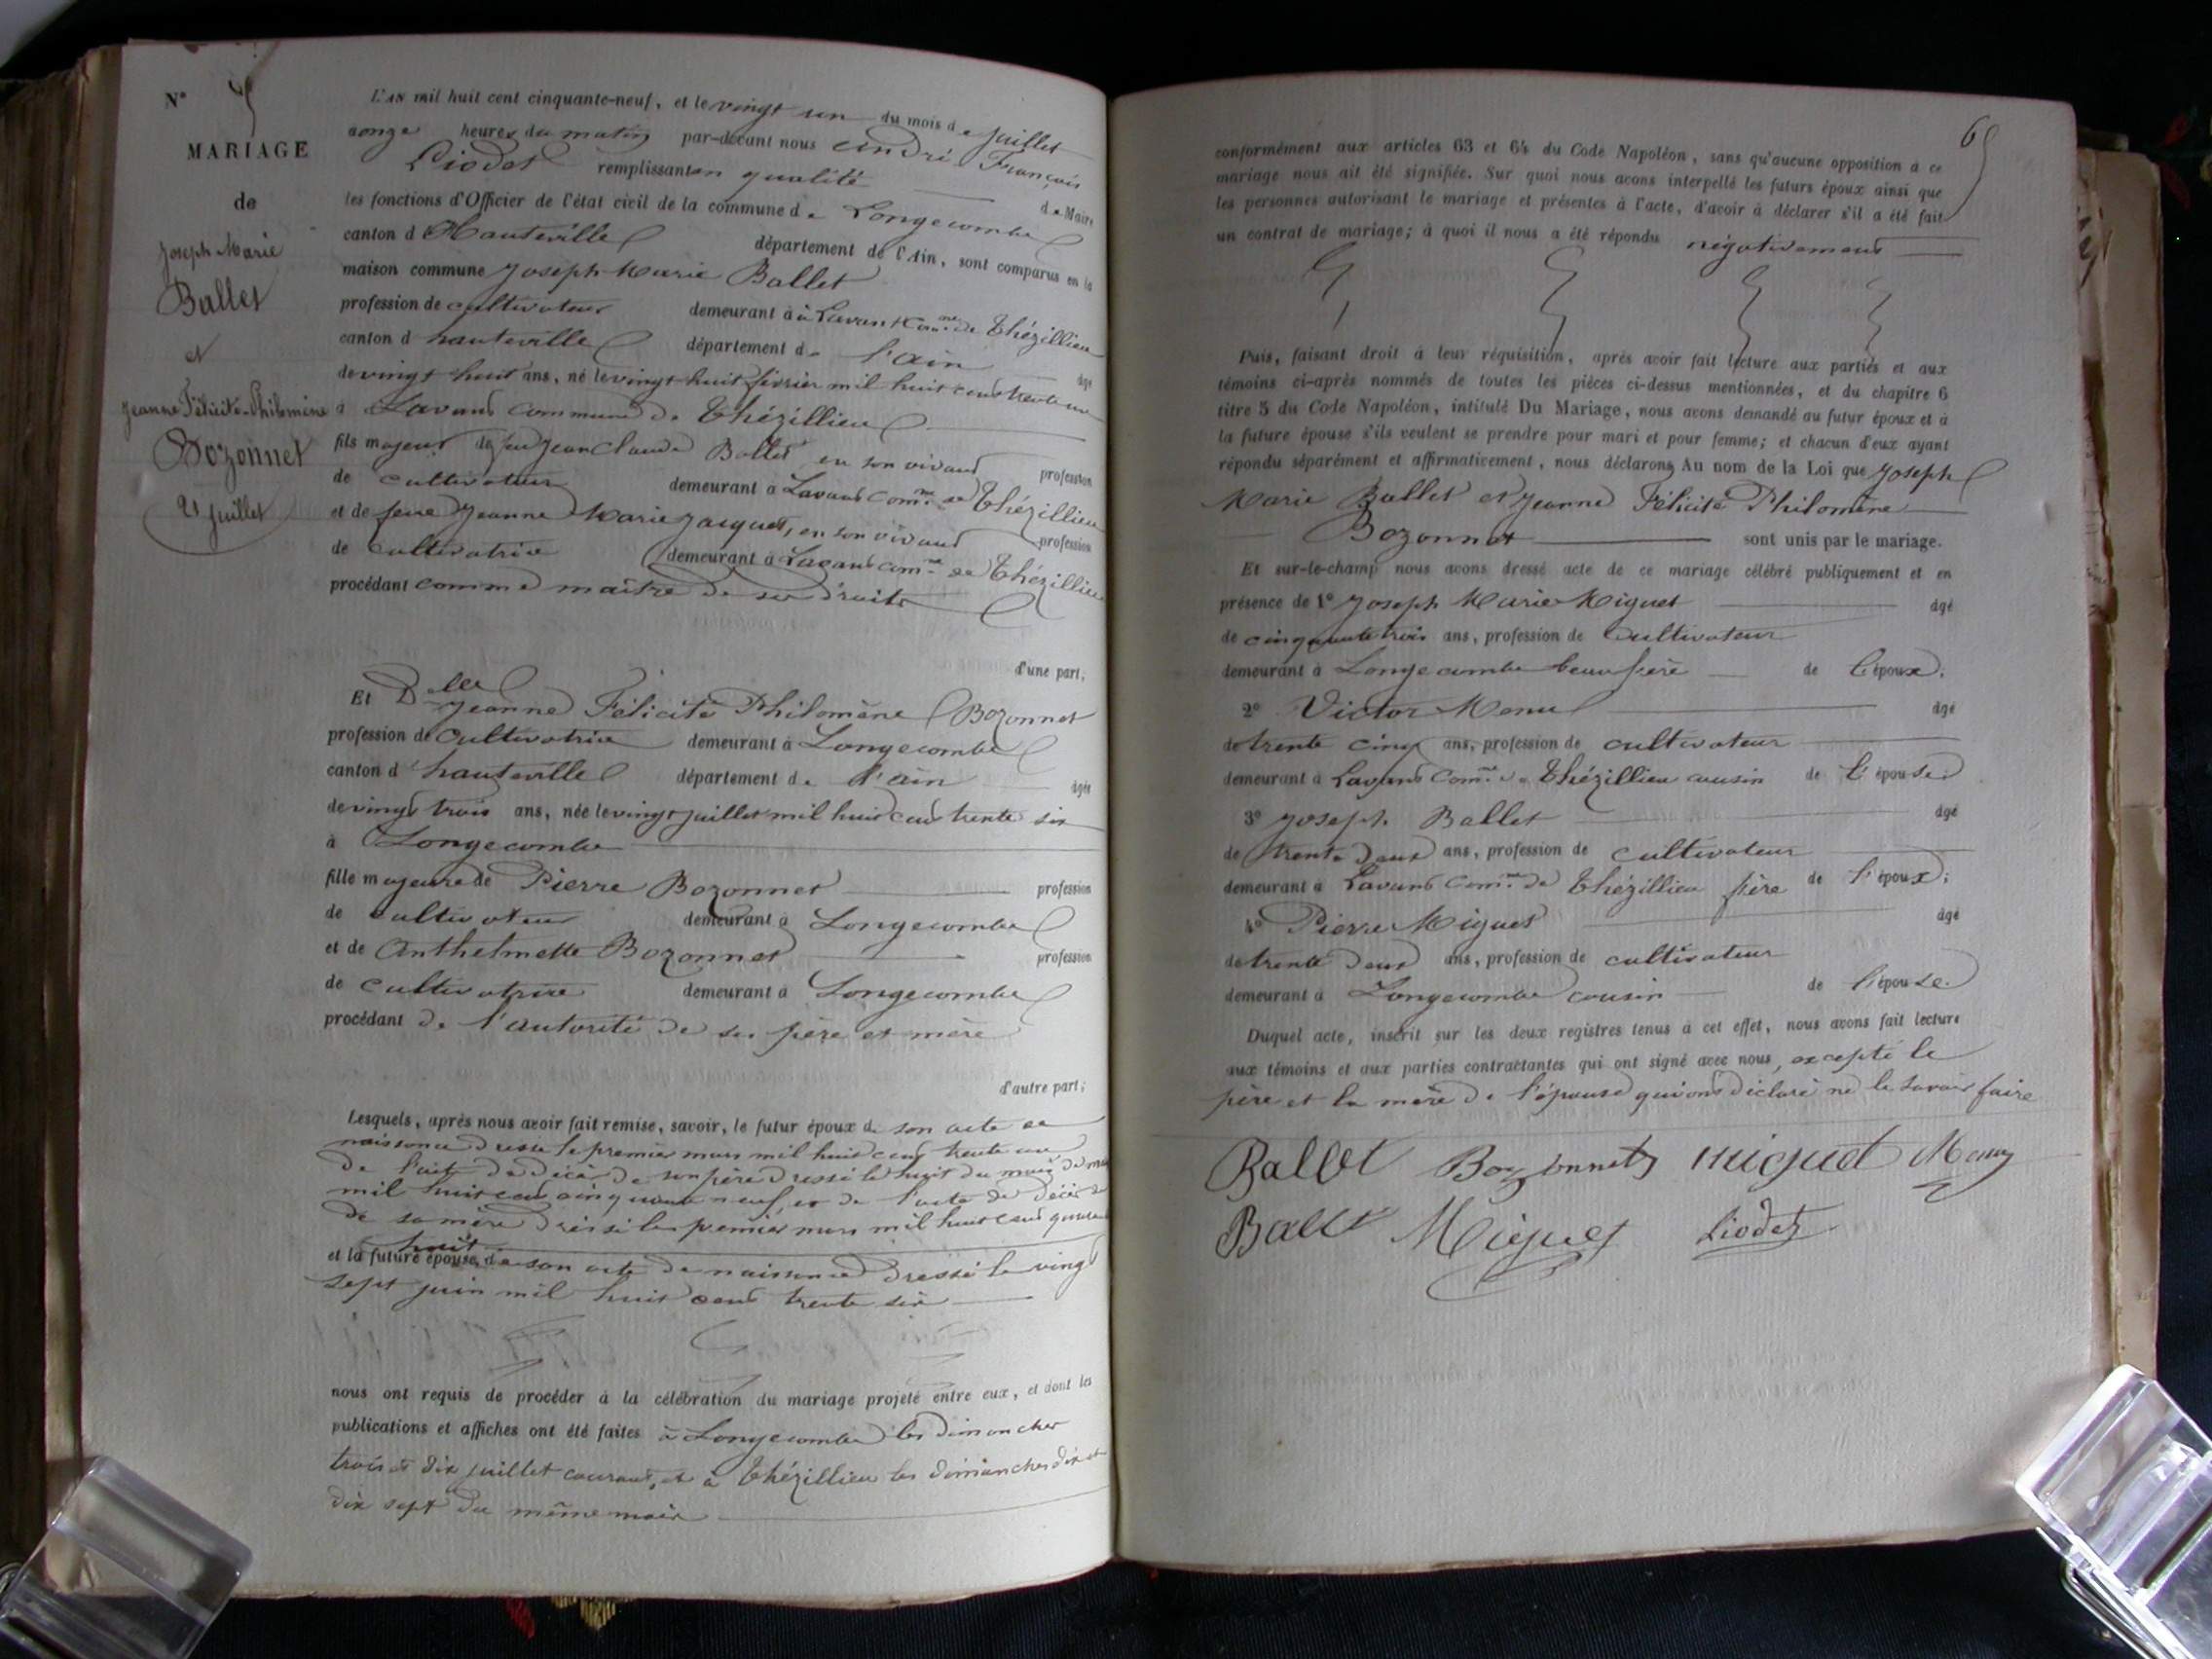 N° 5
MARIAGE
de
Joseph Marie
Ballet
et
Jeanne Félicité-Philomène
Bozonnet
21 juillet
L'AN mil huit cent cinquante-neuf, et le vingt un du mois de juillet
à onze heures du matin par-devant nous André François
Liodet remplissant en qualité de Maire
les fonctions d'Officier de l'état civil de la commune de Longecombe
canton d'Hauteville département de l'Ain, sont comparus en la
maison commune Joseph Marie Ballet
profession de cultivateur demeurant à à Lavant Com.ne de Thézillieu
canton d hauteville département de l'ain âgé
de vingt huit ans, né le vingt-huit février mil huit cent trente un
à Lavant commune de Thézillieu
fils majeur de feu Jean Claude Ballet en son vivant profession
de cultivateur demeurant à Lavant Com.ne de Thézillieu
et de feue Jeanne Marie Jacquet, en son vivant profession
de cultivatrice demeurant à Lavant com.ne de Thézillieu
procédant comme maître de ses droits
d'une part;
Et D.lle Jeanne Félicité Philomène Bozonnet
profession de cultivatrice demeurant à Longecombe
canton d'hauteville département de l'ain âgée
de vingt trois ans, née le vingt juillet mil huit cent trente six
à Longecombe
fille majeure de Pierre Bozonnet profession
de cultivateur demeurant à Longecombe
et de Anthelmette Bozonnet profession
de cultivatrice demeurant à Longecombe
procédant de l'autorité de ses père et mère
d'autre part;
Lesquels, après nous avoir fait remise, savoir, le futur époux de son acte de
naissance dressé le premier mars mil huit cent trente un
de l'acte de décès de son père dressé le huit du mois de mai
mil huit cent cinquante neuf, et de l'acte de décès de
de sa mère dressé le premier mars mil huit cent quarante
huit
et la future épouse, de son acte de naissance dressé le vingt
sept juin mil huit cent trente six
nous ont requis de procéder à la célébration du mariage projeté entre eux, et dont les
publications et affiches ont été faites à Longecombe les dimanches
trois et dix juillet courant, et à Thézillieu les dimanches dix et
dix sept du même mois
65
conformément aux articles 63 et 64 du Code Napoléon, sans qu'aucune opposition à ce
mariage nous ait été signifiée. Sur quoi nous avons interpellé les futurs époux ainsi que
les personnes autorisant le mariage et présentes à l'acte, d'avoir à déclarer s'il a été fait
un contrat de mariage; à quoi il nous a été répondu négativement
Puis, faisant droit à leur réquisition, après avoir fait lecture aux parties et aux
témoins ci-après nommés de toutes les pièces ci-dessus mentionnées, et du chapitre 6
titre 5 du Code Napoléon, intitulé Du Mariage, nous avons demandé au futur époux et à
la future épouse s'ils veulent se prendre pour mari et pour femme; et chacun d'eux ayant
répondu séparément et affirmativement, nous déclarons Au nom de la Loi que Joseph
Marie Ballet et Jeanne Félicité Philomène
Bozonnet sont unis par le mariage.
Et sur-le-champ nous avons dressé acte de ce mariage célébré publiquement et en
présence de 1° Joseph Marie Miguet âgé
de cinquante trois ans, profession de Cultivateur
demeurant à Longecombe beau frère de l'époux;
2° Victor Menu âgé
de trente cinq ans, profession de cultivateur
demeurant à Lavant Com.ne de Thézillieu cousin de l'épouse
3° Joseph Ballet âgé
de trente deux ans, profession de cultivateur
demeurant à Lavant Com.ne de Thézillieu frère de l'époux;
4° Pierre Miguet âgé
de trente deux ans, profession de cultivateur
demeurant à Longecombe cousin de l'épouse.
Duquel acte, inscrit sur les deux registres tenus à cet effet, nous avons fait lecture
aux témoins et aux parties contractantes qui ont signé avec nous, excepté le
père et la mère de l'épouse qui ont déclaré ne le savoir faire
Ballet Bozonnet Miguet Menu
Ballet Miguet Liodet